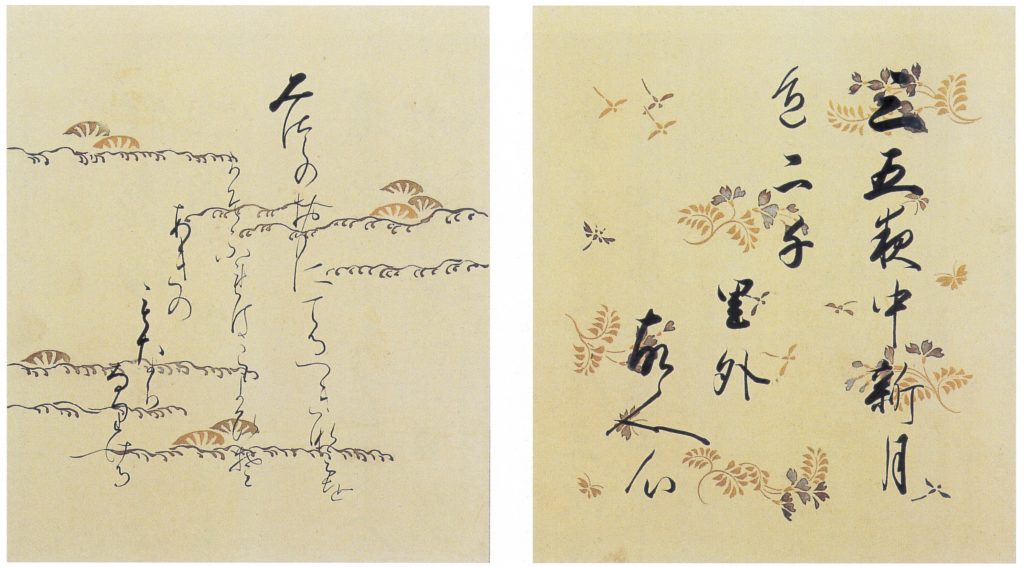 三五夜中新月
色二千
里外
故人心
水のおもにてるつきなみを
かそふれはこよひそ
あきの
もなか
なりける